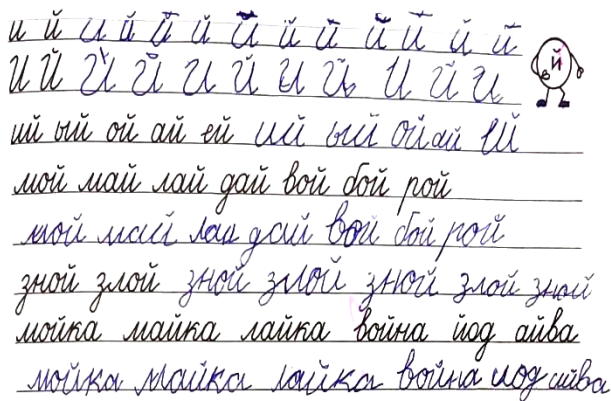 и й и й й й й й й й й й й
И Й Й Й И Й И Й И Й И
ий ый ой ай ей ий ый ой ай ей
мой май лай дай вой бой рой
мой май лаи дай вой бой рой
зной злой зной злой зной злой зной
мойка майка лайка война йод айва
мойка майка лайка война иод айва
й